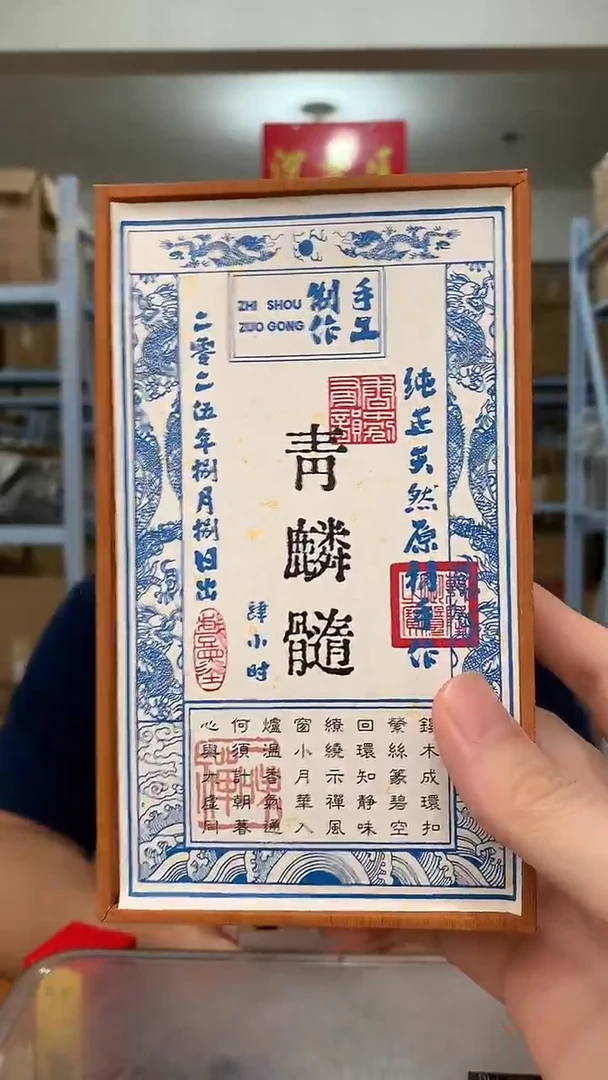 手工
制作
ZHI SHOU
ZUO GONG
纯正天然原材手作
青麟髓
肆小时
二零二伍年捌月捌日出
木成環扣
縈絲篆碧空
回環知靜味
繚繞示禪風
窗小月華入
爐溫香氣通
何須計朝暮
心與太虛同